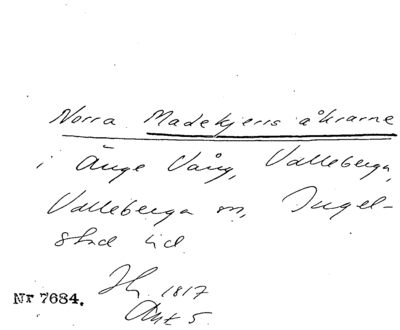 Norra Madekjerrs åkrarne
i Änge Vång, Valleberga,
Valleberga sn, Ingel-
stad hd
1817
Akt 5.
Nr 7684.